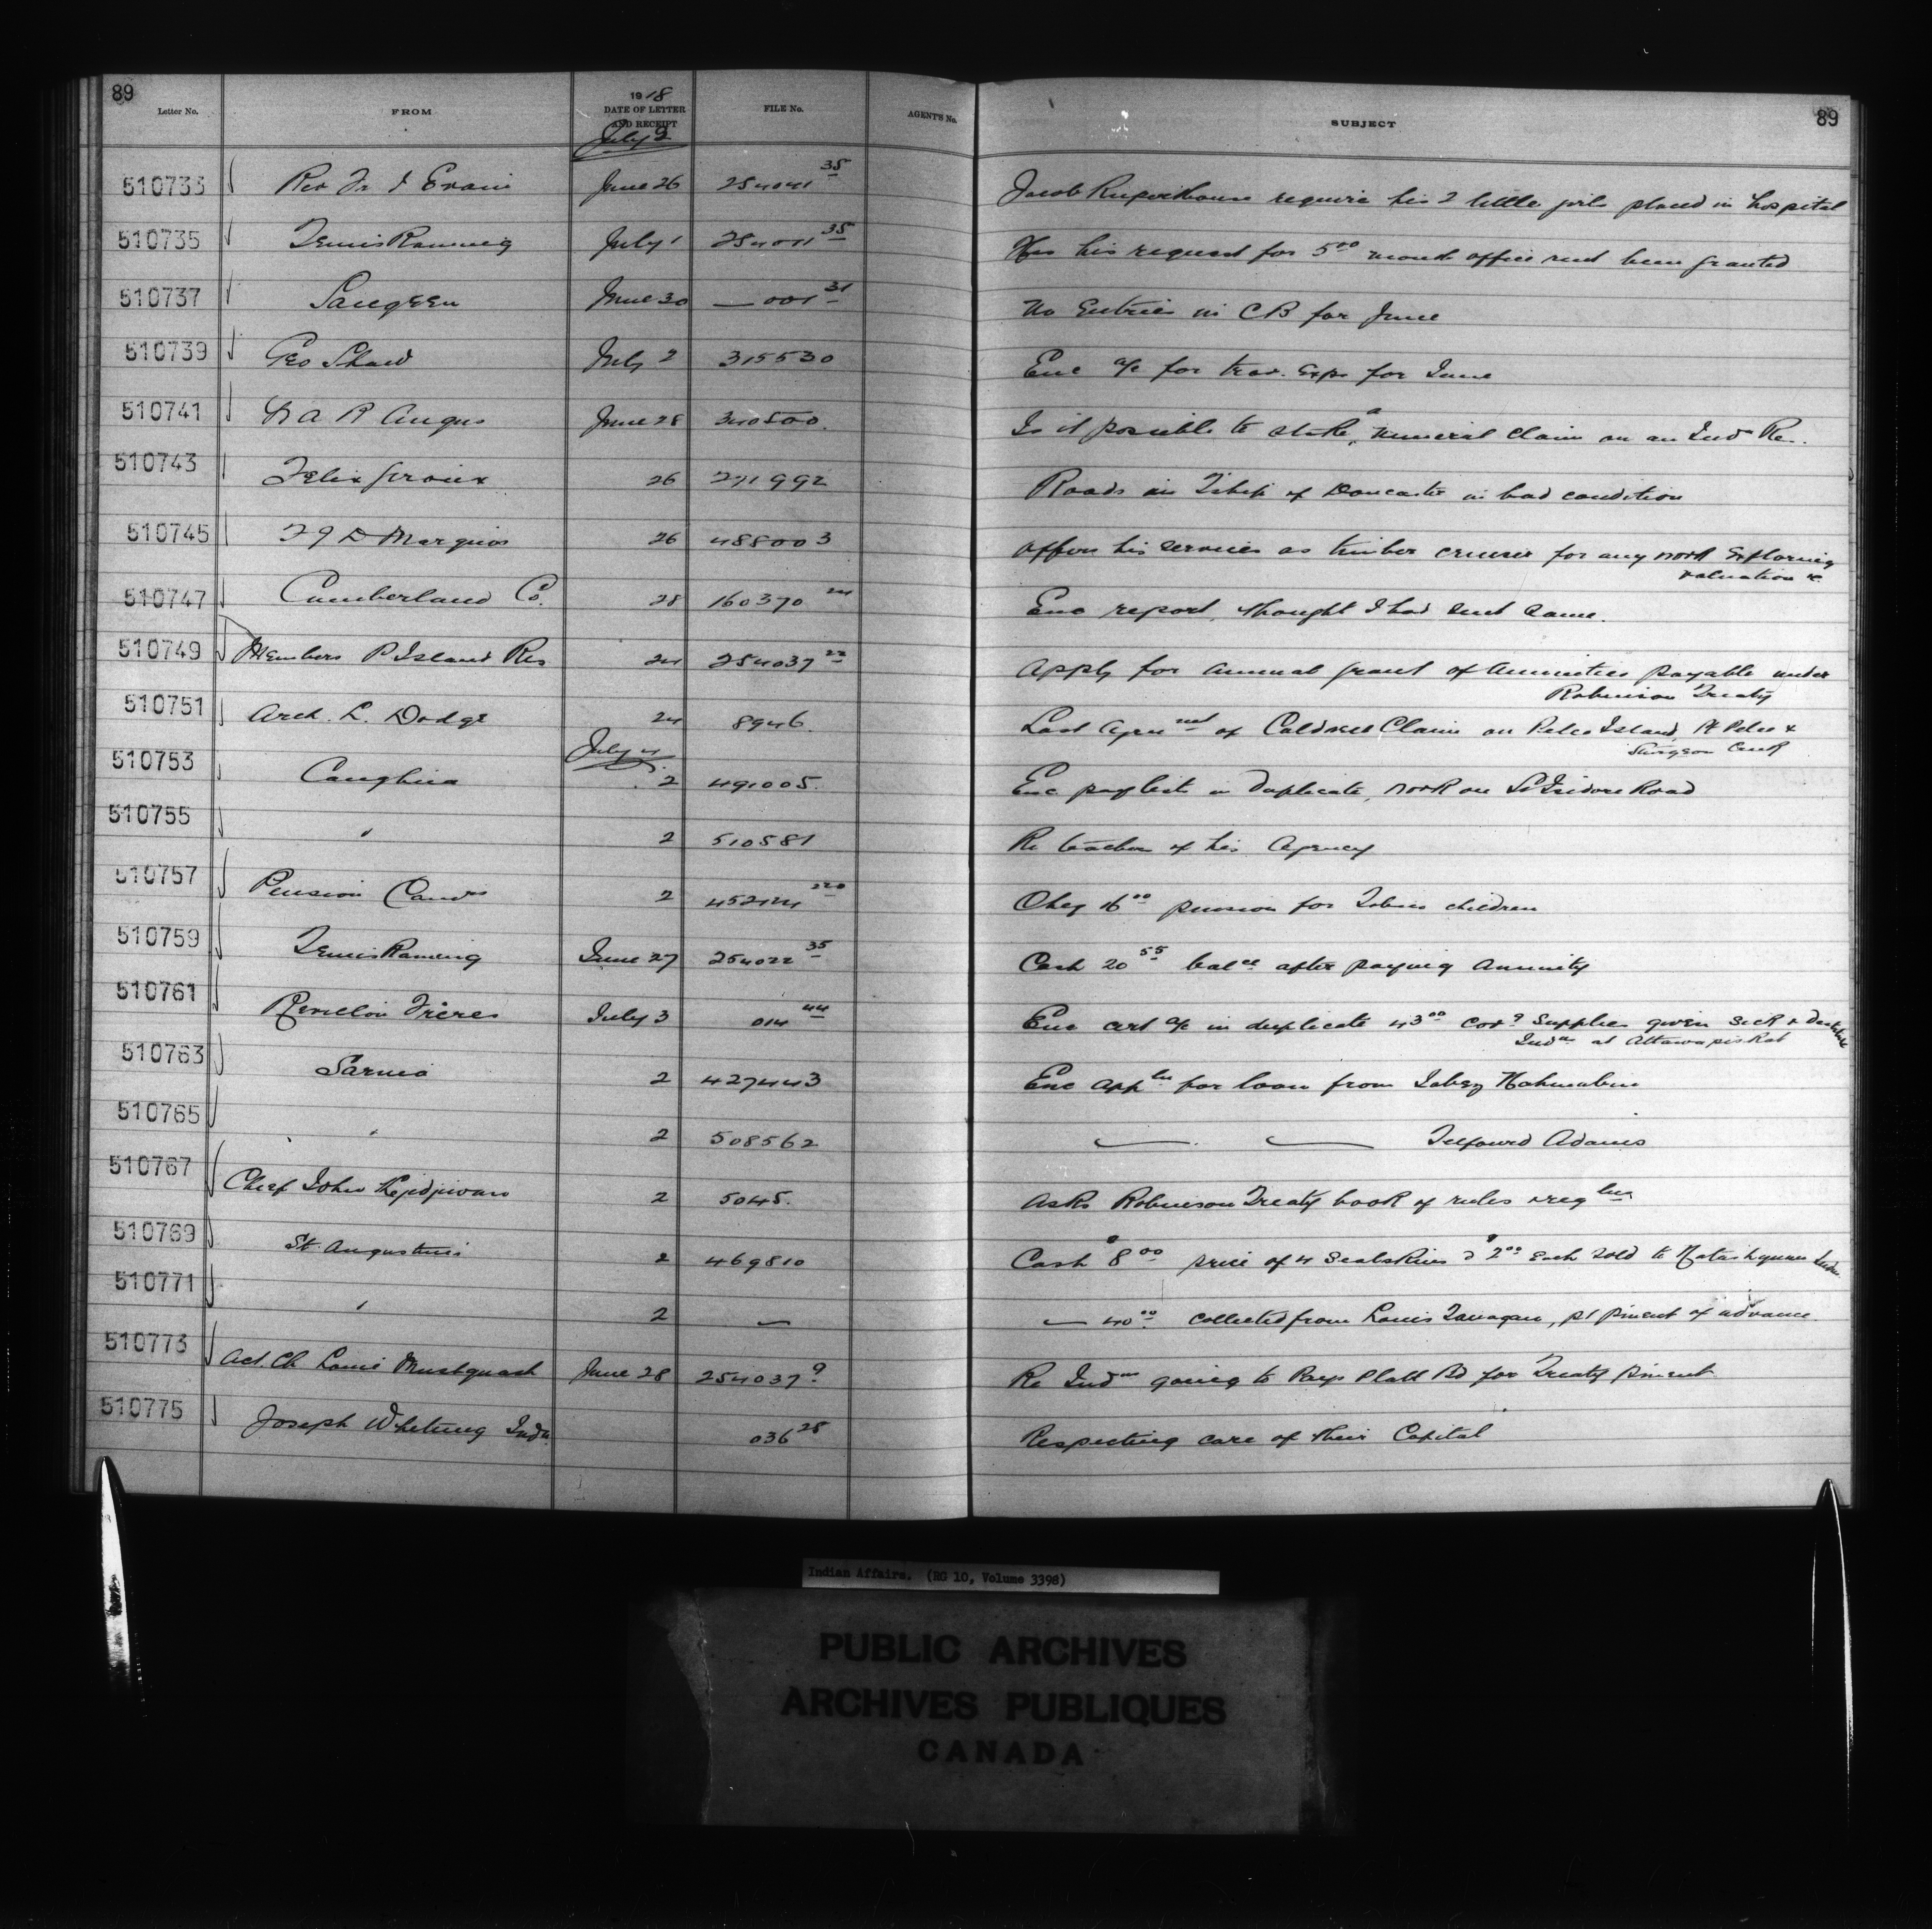 89
Letter No. FROM 1918 DATE OF LETTER AND RECEIPT FILE No. AGENT'S No. SUBJECT 89
July 2
510733 Rev Fr I Evain June 26 254041 35 Jacob require his 2 little girls placed in hospital
510735 July 1 254011 35 Has his request for 5 00 month office rent been granted
510737 Saugeen June 30 — 001 31 No Entries in CB for June
510739 Geo Shaw July 2 315530 Enc a/c for trav. Exps for June
510741 A R Angus June 28 340500. Is it possible to stake a mineral claim on an Ind Re..
510743 Felix Giroux 26 271992 Roads in Tship of Doncaster in bad condition
510745 Marquis 26 488003 Offers his services as timber cruiser for any work Exploring
valuation &c
510747 Cumberland Co. 28 160370 24 Enc report, thought I had sent same.
510749 Members P Island Res 24 254037 22 Apply for annual grant of annuities payable under
Robinson Treaty
510751 Arch. L. Dodge 24 8946. Last Agrmt of Caldwell Claim on Pelee Island, Pt Pelee &
Sturgeon Creek
July 4
510753 Caughna 2 491005. Enc paylists in Duplicate, work on St Isidore Road
510755 " 2 510581 Re teacher of his Agency
510757 Pension 2 452124 220 Cheq 16 00 pension for Tobias children
510759 June 27 254022 35 Cash 20 55 balce after paying Annuity
510761 Revillon Frères July 3 014 44 Enc cert a/c in duplicate 43 00 Supplies given sick & Destitute
Inds at Attawapiskat
510763 Sarnia 2 427443 Enc appln for loan from
510765 " 2 508562 — — Telford Adams
510767 Chief John Kejidjiwan 2 5045. Asks Robinson Treaty book of rules & reglns
510769 St. Augustine 2 469810 Cash $8 00 price of 4 Sealskins @ $2 00 Each sold to Natashquan Indn
510771 " 2 — — 40 00 collected from Louis, pt pment of advance.
510773 Act Ch Louis Mushquash June 28 254037 9 Re Inds going to Pays Platt Bd for Treaty Pment
510775 Joseph Whetung Indn. 036 28 Respecting care of their Capital
Indian Affairs. (RG 10, Volume 3398)
PUBLIC ARCHIVES
ARCHIVES PUBLIQUES
CANADA